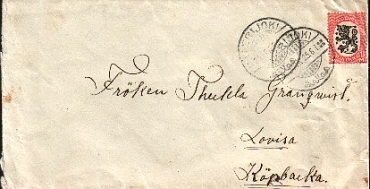 Fröken Thekla Granqvist.
Lovisa
Köpbacka.